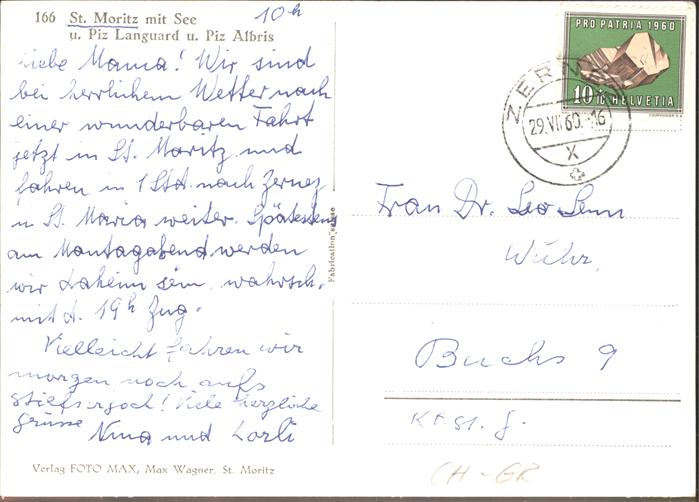 166 St. Moritz mit See
u. Piz Languard u. Piz Albris
10 h
Liebe Mama! Wir sind
bei herrlichem Wetter nach
einer wunderbaren Fahrt
jetzt in St. Moritz und
fahren in 1 Std. nach Zernez
u St. Maria weiter. Spätestens
am Montagabend werden
wir daheim sein, wahrsch.
mit d. 19 h Zug.
Vielleicht fahren wir
morgen noch aufs
Stilfserjoch! Viele herzliche
Grüsse Nina und
Verlag FOTO MAX, Max Wagner, St. Moritz
Fabrication suisse
PRO PATRIA 1960
10+10 HELVETIA
ZERNEZ
29.VII.60.-16
X
Frau Dr. Leo Senn
Wühr,
Buchs 9
Kt. St. G.
CH-GR